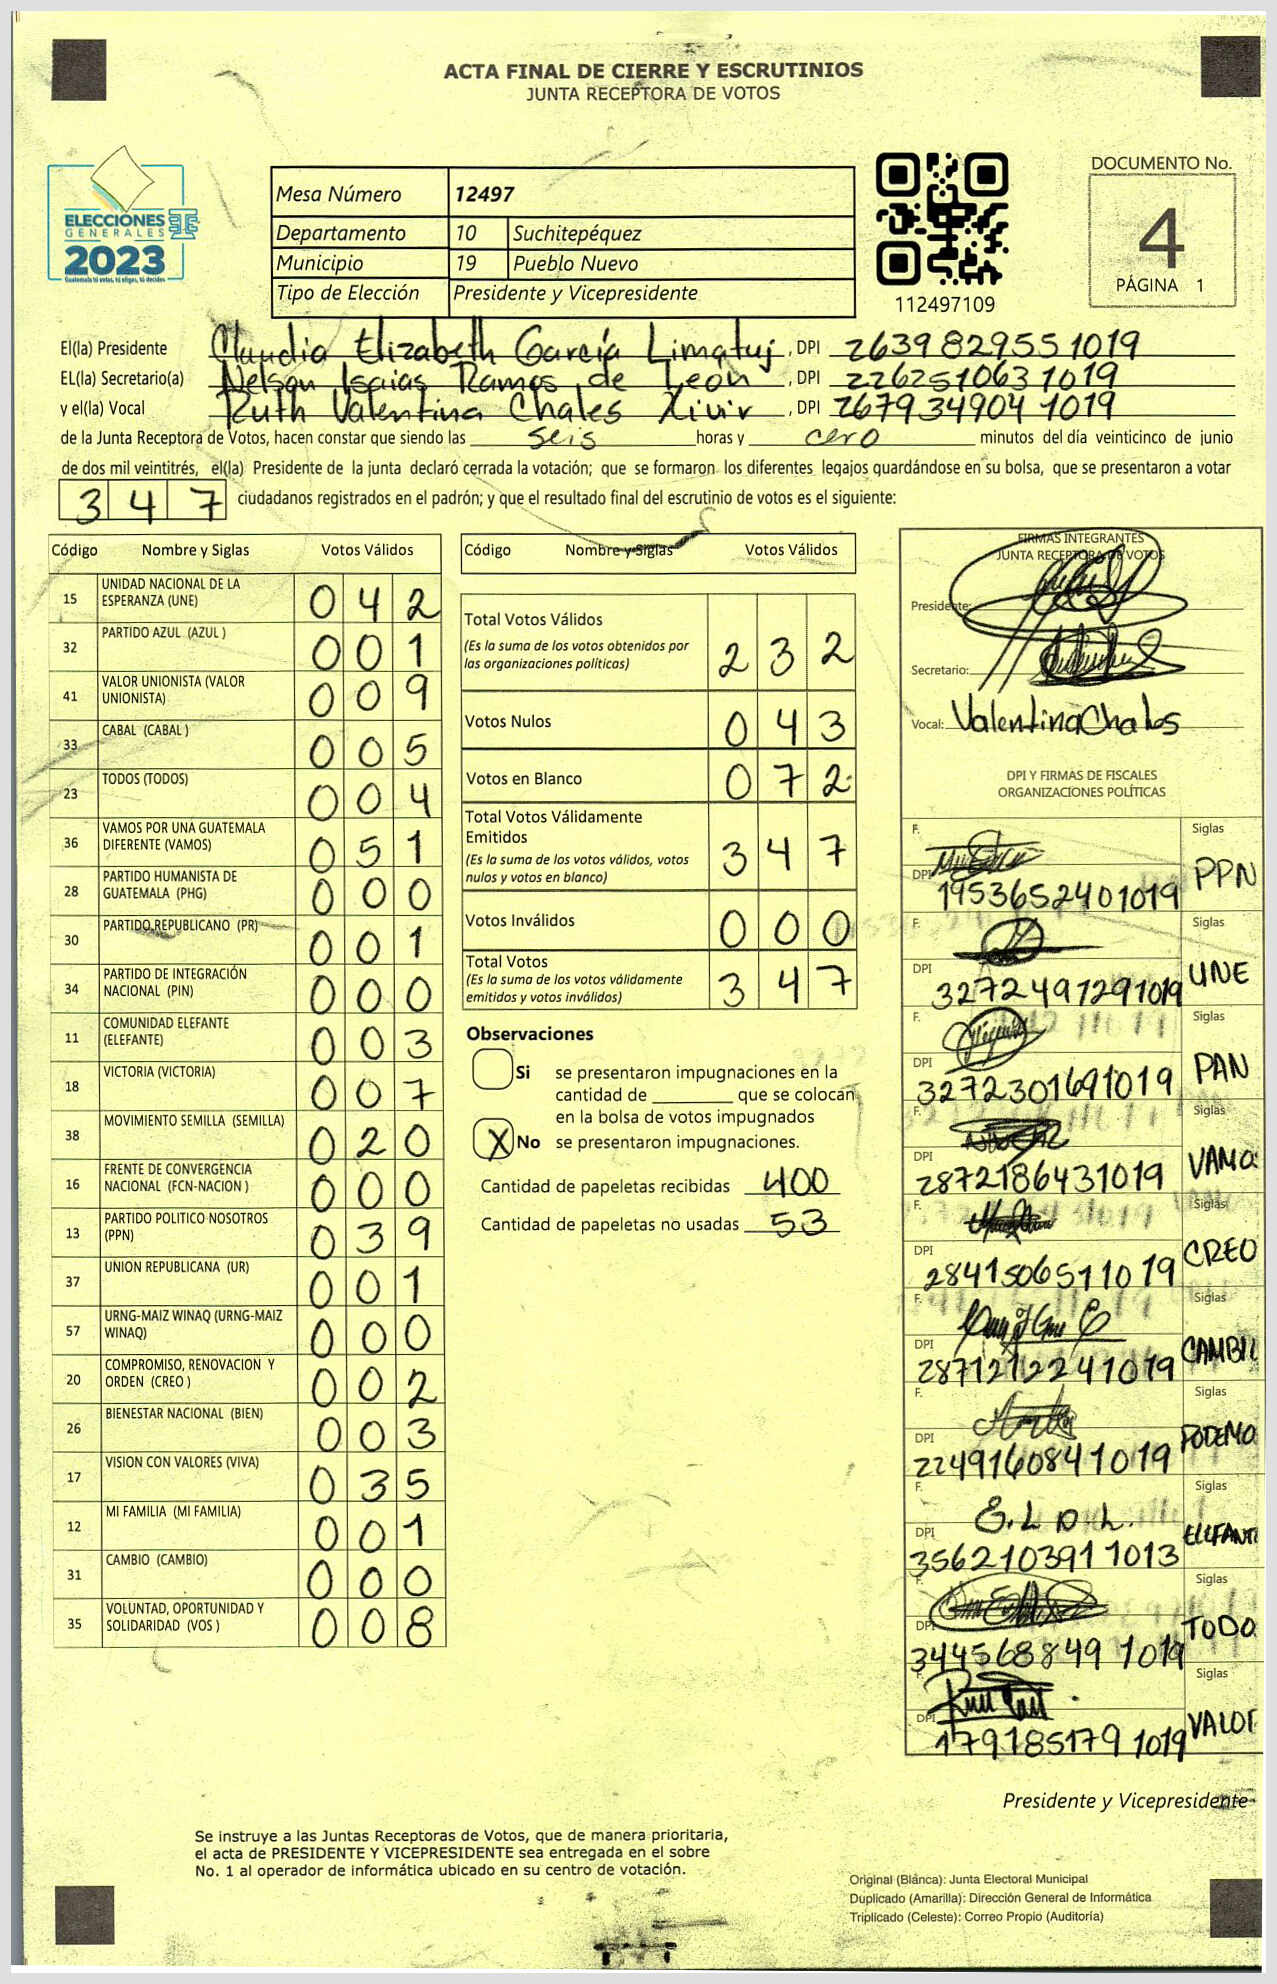 ACTA FINAL DE CIERRE Y ESCRUTINIOS
JUNTA RECEPTORA DE VOTOS
ELECCIONES
GENERALES
2023
Guatemala tú votas, tú eliges, tú decides
Mesa Número 12497
Departamento 10 Suchitepéquez
Municipio 19 Pueblo Nuevo
Tipo de Elección Presidente y Vicepresidente
112497109
DOCUMENTO No.
4
PÁGINA 1
El(la) Presidente Claudia Elizabeth García Limatuj, DPI 2639829551019
EL(la) Secretario(a) Nelson Isaias Ramos de León, DPI 2262510631019
y el(la) Vocal Ruth Valentina Chales Xivir, DPI 2679349041019
de la Junta Receptora de Votos, hacen constar que siendo las seis horas y cero minutos del día veinticinco de junio
de dos mil veintitrés, el(la) Presidente de la junta declaró cerrada la votación; que se formaron los diferentes legajos guardándose en su bolsa, que se presentaron a votar
347 ciudadanos registrados en el padrón; y que el resultado final del escrutinio de votos es el siguiente:
Código Nombre y Siglas Votos Válidos
15 UNIDAD NACIONAL DE LA ESPERANZA (UNE) 042
32 PARTIDO AZUL (AZUL ) 001
41 VALOR UNIONISTA (VALOR UNIONISTA) 009
33 CABAL (CABAL ) 005
23 TODOS (TODOS) 004
36 VAMOS POR UNA GUATEMALA DIFERENTE (VAMOS) 051
28 PARTIDO HUMANISTA DE GUATEMALA (PHG) 000
30 PARTIDO REPUBLICANO (PR) 001
34 PARTIDO DE INTEGRACIÓN NACIONAL (PIN) 000
11 COMUNIDAD ELEFANTE (ELEFANTE) 003
18 VICTORIA (VICTORIA) 007
38 MOVIMIENTO SEMILLA (SEMILLA) 020
16 FRENTE DE CONVERGENCIA NACIONAL (FCN-NACION ) 000
13 PARTIDO POLITICO NOSOTROS (PPN) 039
37 UNION REPUBLICANA (UR) 001
57 URNG-MAIZ WINAQ (URNG-MAIZ WINAQ) 000
20 COMPROMISO, RENOVACION Y ORDEN (CREO ) 002
26 BIENESTAR NACIONAL (BIEN) 003
17 VISION CON VALORES (VIVA) 035
12 MI FAMILIA (MI FAMILIA) 001
31 CAMBIO (CAMBIO) 000
35 VOLUNTAD, OPORTUNIDAD Y SOLIDARIDAD (VOS ) 008
Código Nombre y Siglas Votos Válidos
Total Votos Válidos 232
(Es la suma de los votos obtenidos por
las organizaciones políticas)
Votos Nulos 043
Votos en Blanco 072
Total Votos Válidamente
Emitidos 347
(Es la suma de los votos válidos, votos
nulos y votos en blanco)
Votos Inválidos 000
Total Votos 347
(Es la suma de los votos válidamente
emitidos y votos inválidos)
Observaciones
Si se presentaron impugnaciones en la
cantidad de ________ que se colocan
en la bolsa de votos impugnados
X No se presentaron impugnaciones.
Cantidad de papeletas recibidas 400
Cantidad de papeletas no usadas 53
FIRMAS INTEGRANTES
JUNTA RECEPTORA DE VOTOS
Presidente:
Secretario:
Vocal: Valentina Chales
DPI Y FIRMAS DE FISCALES
ORGANIZACIONES POLÍTICAS
F. Siglas
DPI 1953652401019 PPN
F. Siglas
DPI 3272497291019 UNE
F. Siglas
DPI 3272301691019 PAN
F. Siglas
DPI 2872186431019 VAMO
F. Siglas
DPI 2841506511019 CREO
F. Siglas
DPI 2871212241019 CAMBI
F. Siglas
DPI 2249160841019 PODEMO
F. E.L D.L. Siglas
DPI 3562103911013 ELEFANT
F. Siglas
DPI 3445688491019 TODO
F. Siglas
DPI 1791851791019 VALOR
Presidente y Vicepresidente
Se instruye a las Juntas Receptoras de Votos, que de manera prioritaria,
el acta de PRESIDENTE Y VICEPRESIDENTE sea entregada en el sobre
No. 1 al operador de informática ubicado en su centro de votación.
Original (Blánca): Junta Electoral Municipal
Duplicado (Amarilla): Dirección General de Informática
Triplicado (Celeste): Correo Propio (Auditoría)